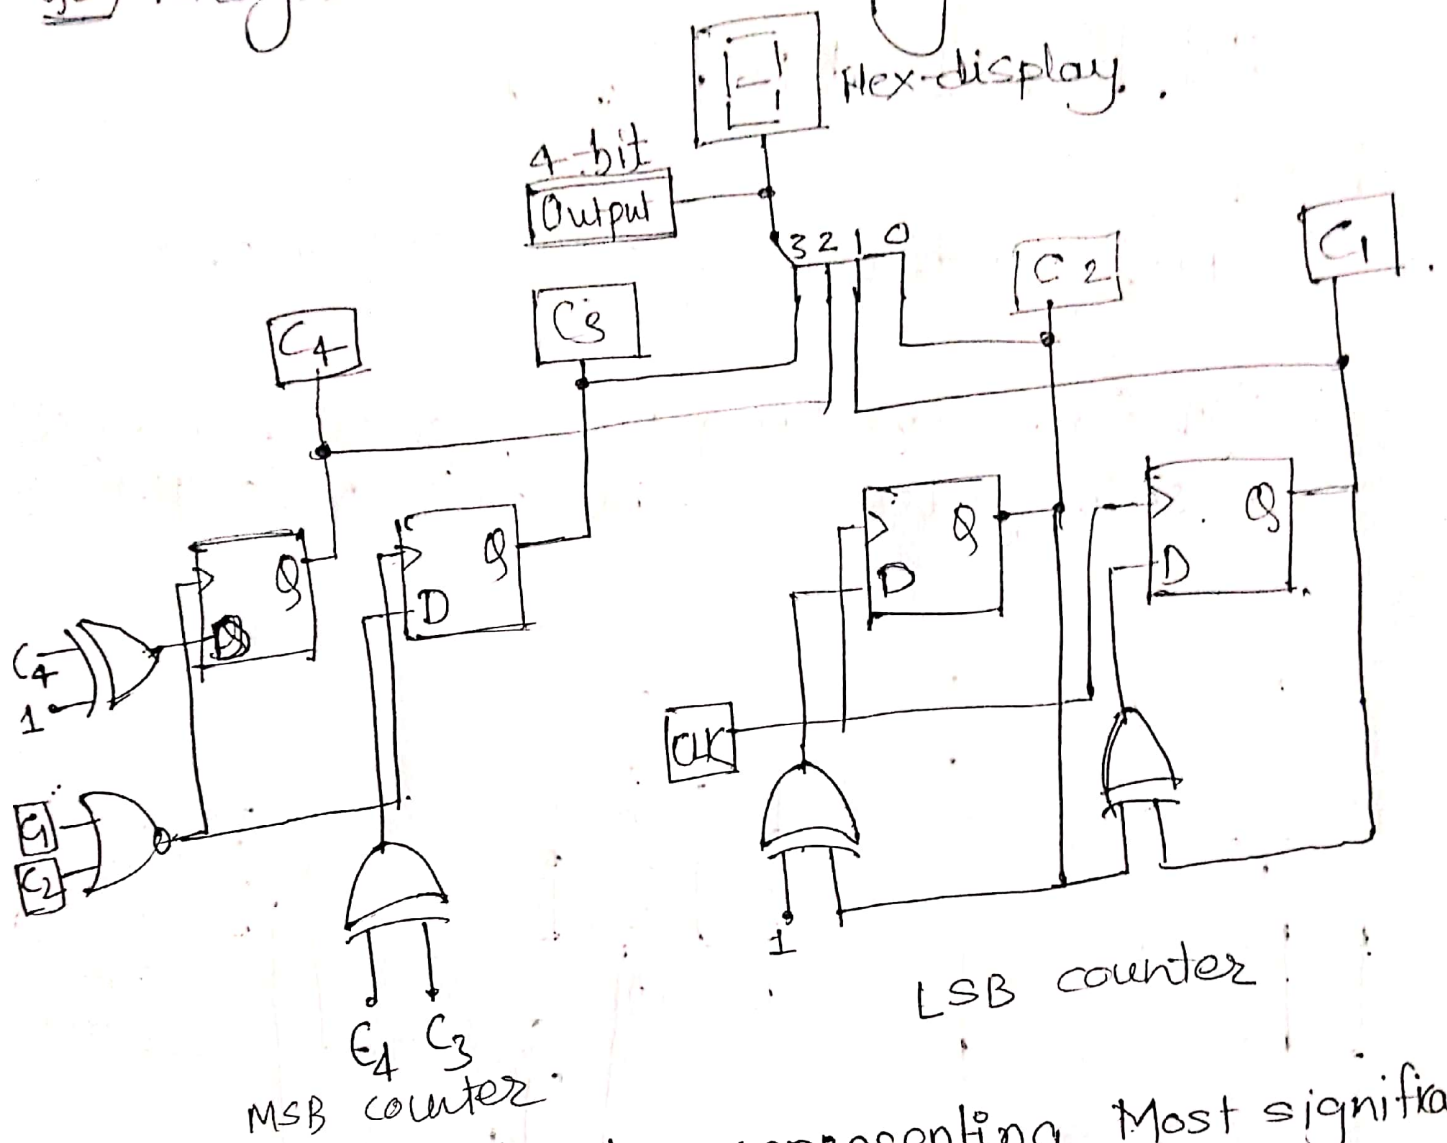 Hex-display.
4-bit
Output
3 2 1 0
C2
C1
C4
C3
Q
D
Q
D
Q
D
Q
D
C4
1
CLK
C1
C2
1
C4 C3
LSB counter
MSB counter
representing Most signifi